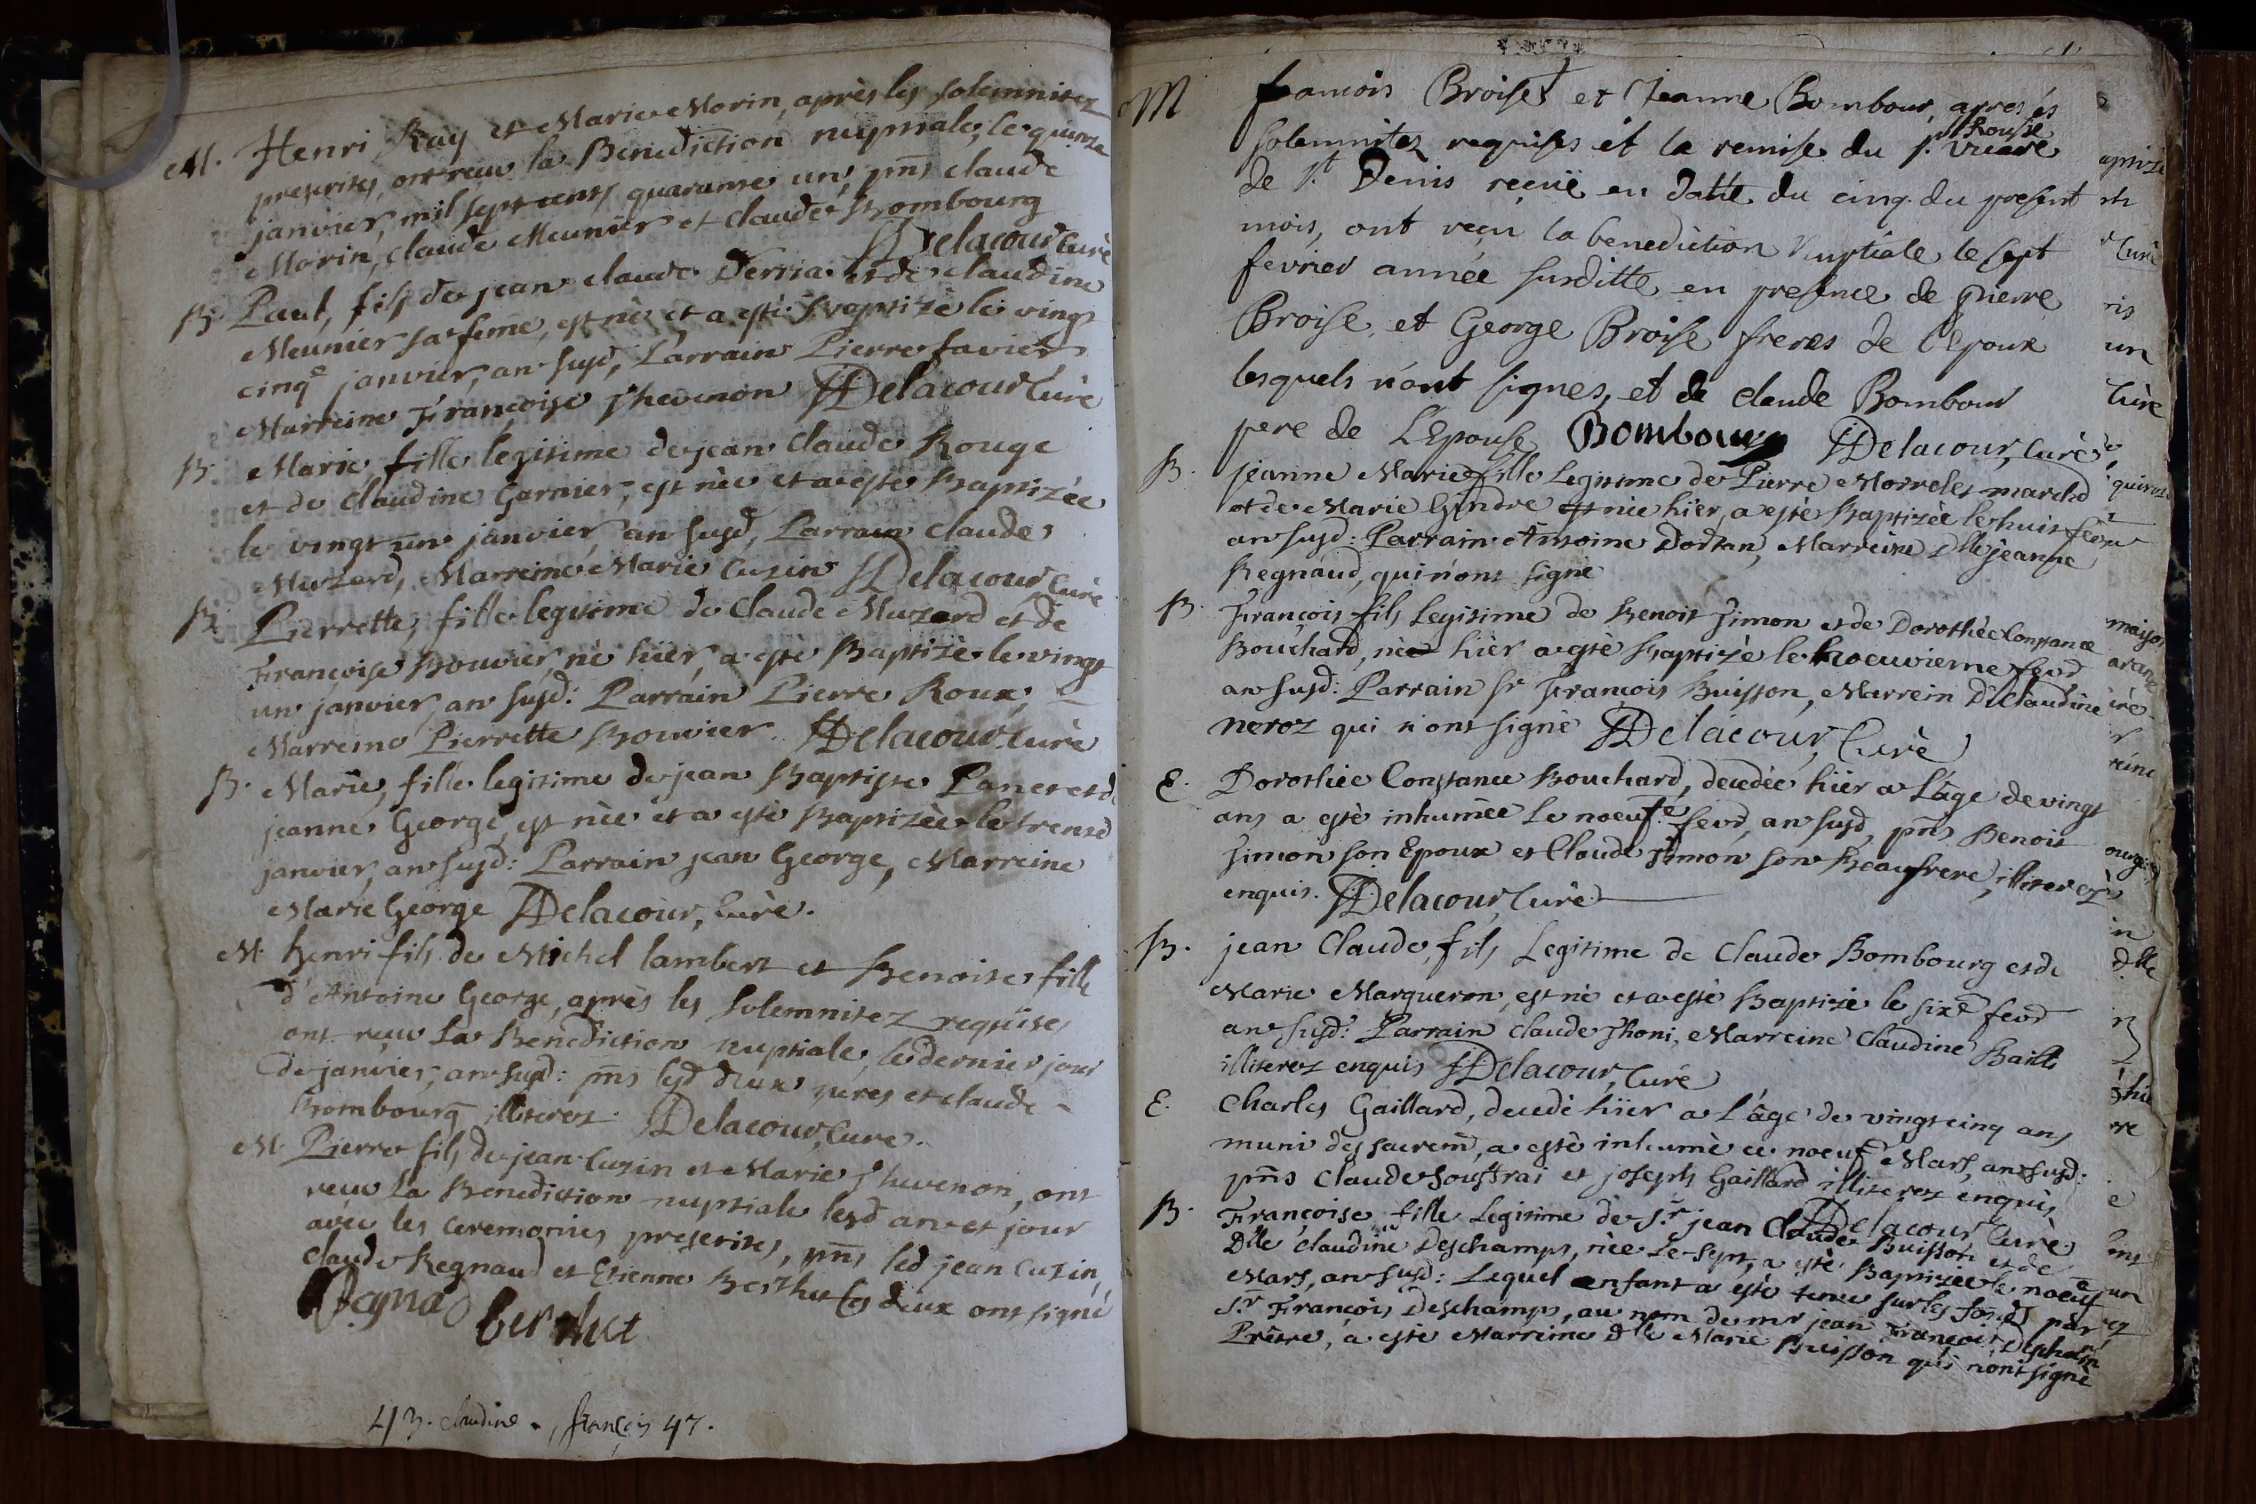 M. Henri Ray et Marie Morin, après les solemnitez
prescrites, ont reçu la Benediction nuptiale, le quinze
janvier, mil sept cents quarante un, pnts claude
Morin, claude Meunier et claude Bombourg
Delacour Curé
B. Paul, fils de jean claude Derria et de claudine
Meunier sa feme, est né et a esté Baptizé le vingt
cinqe janvier, an susd, Parrain Pierre favier
Marreine Françoise Thevenon Delacour Curé
B. Marie, fille legitime de jean Claude Rouge
et de Claudine Garnier, est née et a esté Baptizée
le vingt un janvier, an susd, Parrain claude
Muzard, Marreine Marie Cuzin Delacour Curé
B. Pierrette, fille legitime de Claude Muzard et de
Françoise Bouvier, né hiër, a esté Baptizé le vingt
un janvier, an susd: Parrain Pierre Roux,
Marreine Pierrette Bouvier. Delacour, Curé
B. Marie, fille legitime de jean Baptiste Panet et de
jeanne George, est née et a esté Baptizée le trente
janvier, an susd: Parrain jean George, Marreine
Marie George Delacour, Curé.
M. henri fils de Michel lambert et Benoite fille
d'Antoine George, après les solemnitez requises
ont reçu La Benediction nuptiale, le dernier jour
de janvier, an susd: pnts lesd deux peres et claude
Bombourg illiterez. Delacour, Curé.
M. Pierre fils de jean Cuzin et Marie Thevenon, ont
reçu La Benediction nuptiale lesd an et jour
avec les ceremonies prescrites, pnts led jean Cuzin,
claude Regnaud et Etienne Berthet les deux ont signé
Regnad berthet
43. claudine . françois 47.
M françois Broise et Jeanne Bombour, apres les
solemnites requises et la remise du sr Rousse vicaire
de St Denis reçuë en datte du cinq du present
mois, ont reçu la benediction Nuptiale le sept
fevrier année susditte en presence de pierre
Broise, et George Broise freres de l'Epoux
lesquels n'ont signes, et de claude Bombour
pere de L'Epouse Bombourg Delacour, Curé
B. jeanne Marie fille Legitime de Pierre Morrelet marchd
et de Marie Gindre est née hiër, a esté Baptizée le huit fevr
an susd: Parrain Antoine Dortan, Marreine Dlle jeanne
Regnaud, qui n'ont signé
B. François fils Legitime de Benoit Simon et de Dorothée Constance
Bouchard, né hiër a esté Baptizé le noeuvieme fevr
an susd: Parrain sr François Buisson, Marrein Dlle Claudine
neroz qui n'ont signé Delacour, Curé
E. Dorothée Constance Bouchard, decedée hiër a L'âge de vingt
ans a esté inhumée Le noeufe fevr, an susd, pnts Benoit
Simon son Epoux et Claude Simon son Beaufrere, illiterez
enquis. Delacour Curé
B. jean Claude, fils Legitime de Claude Bombourg et de
Marie Marqueron, est né et a esté Baptizé le sixe fevr
an susd: Parrain claude Thoni, Marreine Claudine Bailli
illiterez enquis Delacour, Curé
E. Charles Gaillard, decedé hiër a L'âge de vingt cinq ans
muni des sacrem, a esté inhumé ce noeuf Mars, an susd:
pnts Claude Souffrai et joseph Gaillard illiterez enquis
Delacour Curé
B. Françoise fille Legitime de sr jean Claude Buisson et de
Dlle claudine Deschamps, née Le sept, a esté Baptizée le noeufe
Mars, an susd: Lequel enfant a esté tenu sur les fonds par
Sr François Deschamps, au nom de mr jean François Deschamps
Prêtre, a esté Marreine dlle Marie Buisson qui n'ont signé